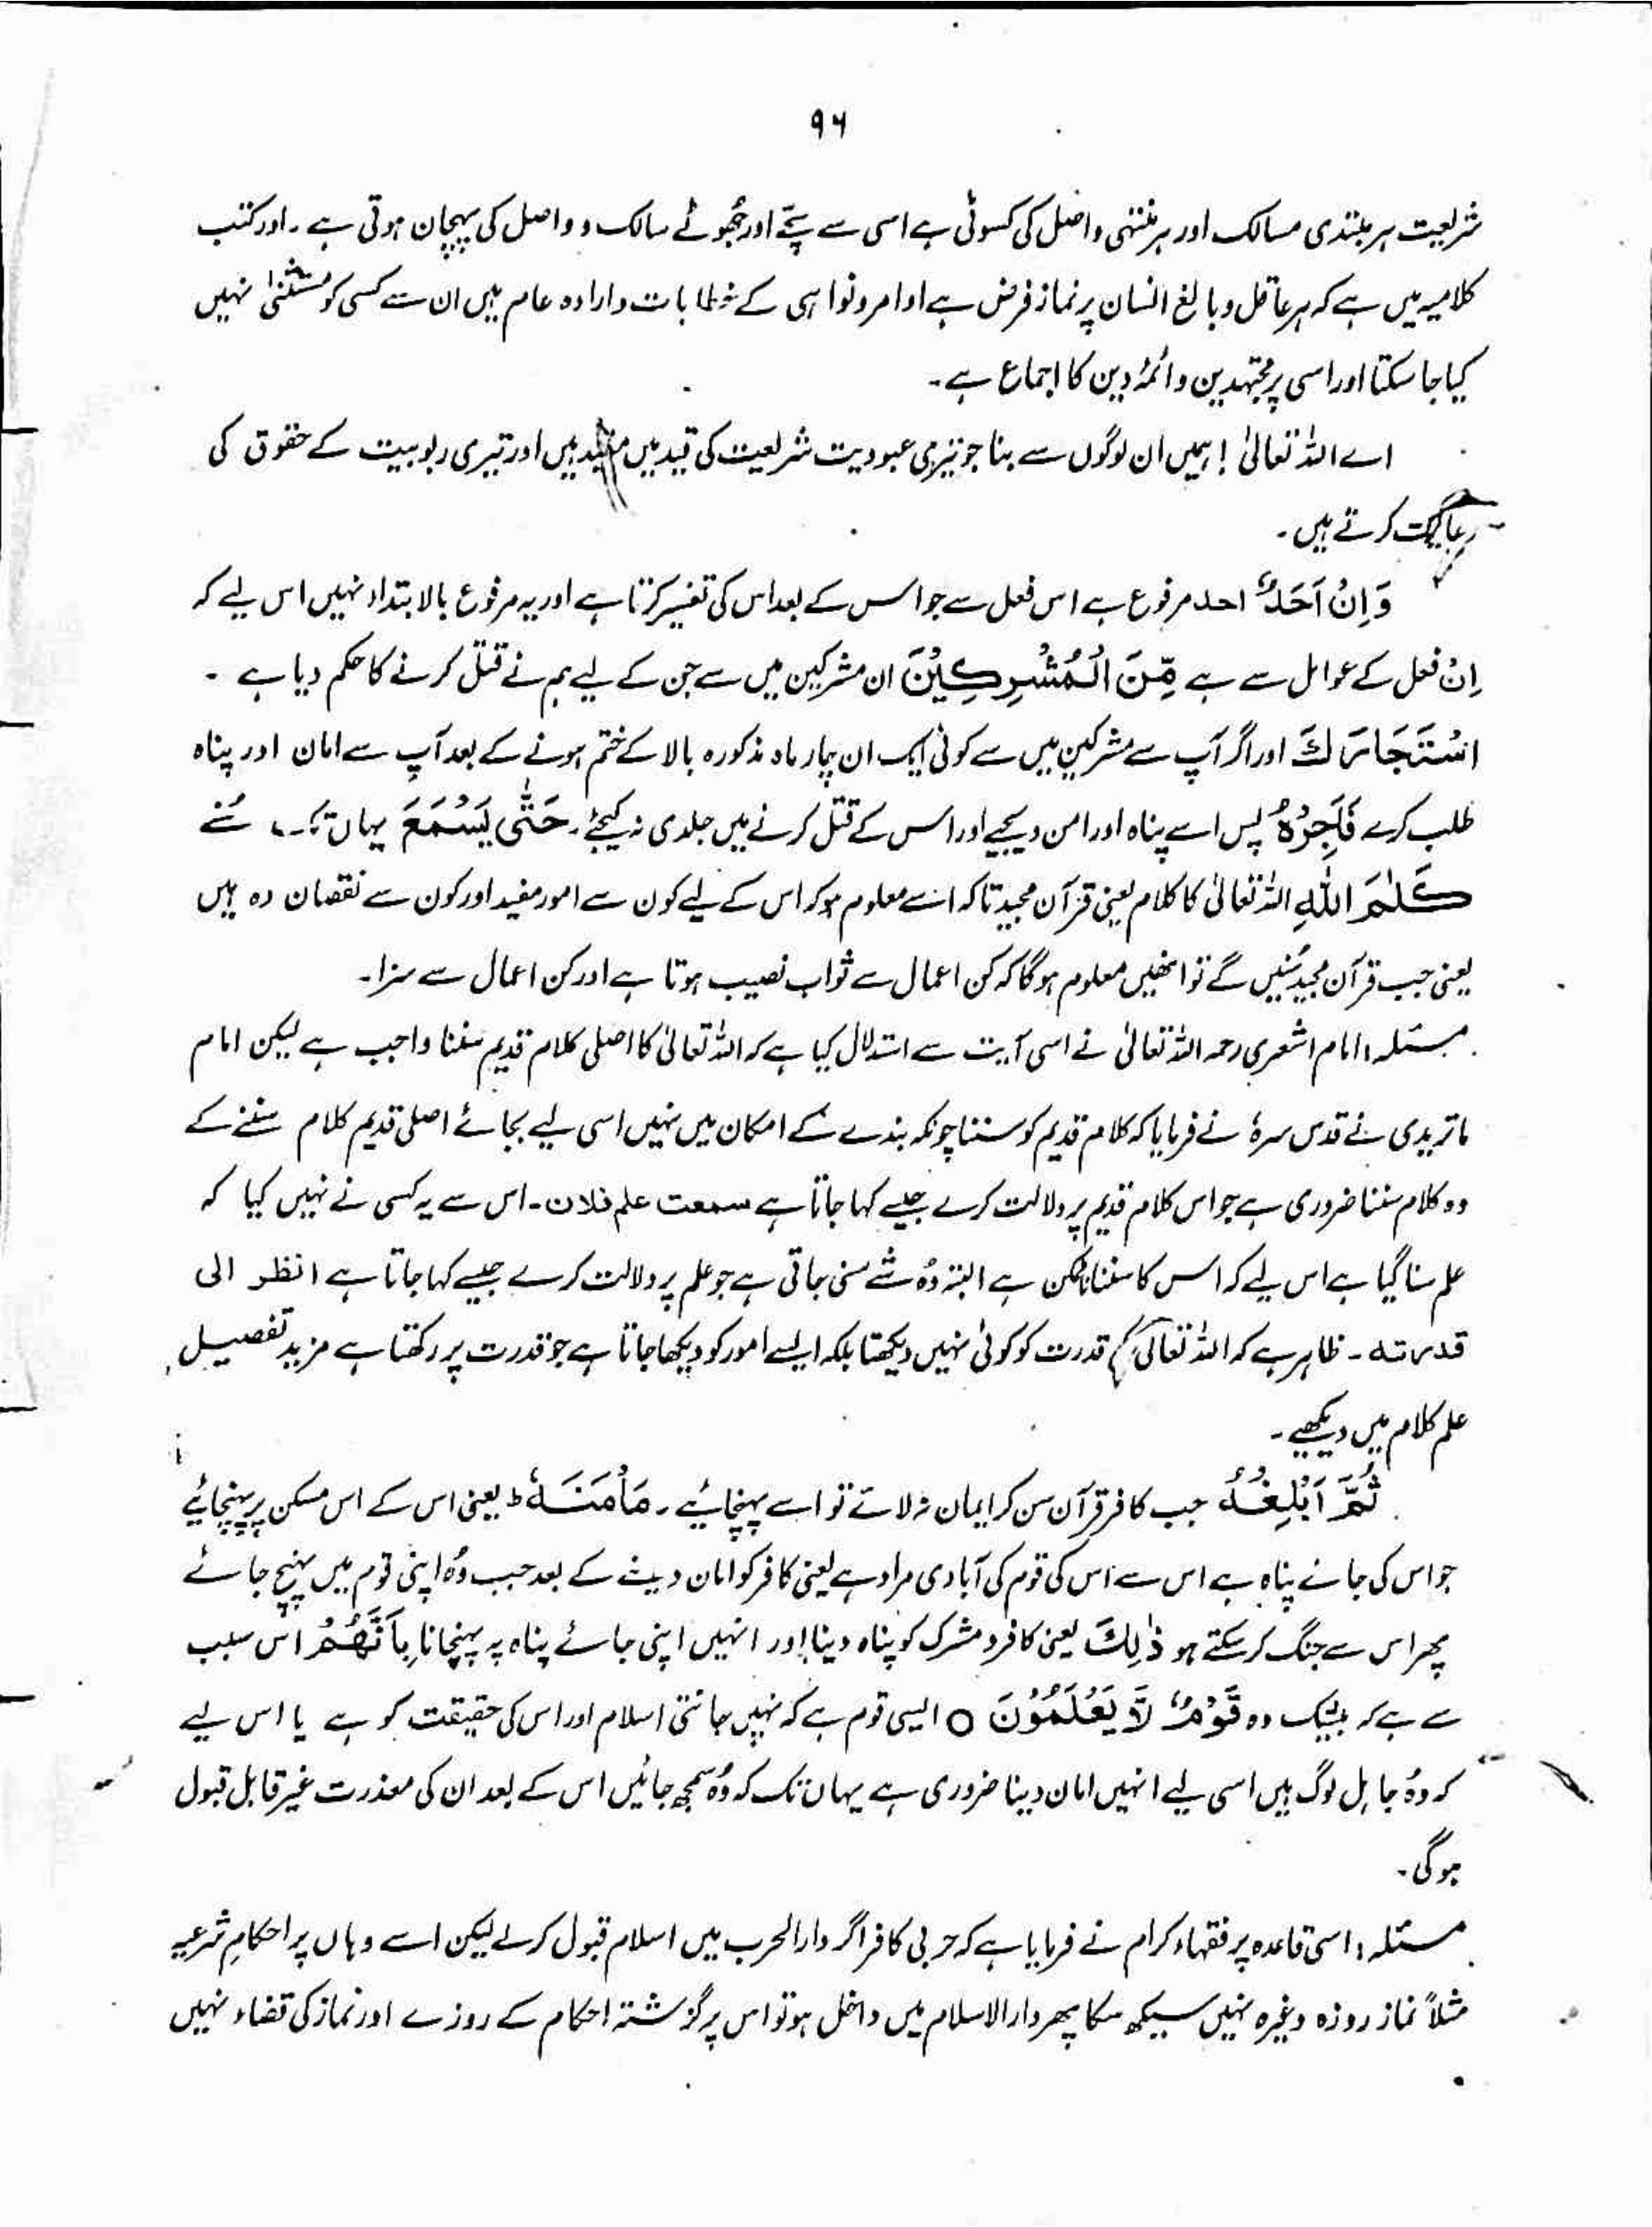 ۹۶
شریعت ہر مبتدی سالک اور ہر منتہی واصل کی کسوٹی ہے اسی سے سچّے اور جُھوٹے سالک و واصل کی پہچان ہوتی ہے ۔ اور کتب
کلامیہ میں ہے کہ ہر عاقل و بالغ انسان پر نماز فرض ہے اوامر و نواہی کے خطابات وارادہ عام ہیں ان سے کسی کو مستثنیٰ نہیں
کیا جا سکتا اور اسی پر مجتہدین و ائمۂ دین کا اجماع ہے ۔
اے اللہ تعالیٰ ! ہمیں ان لوگوں سے بنا جو تیری عبودیت شریعت کی قید میں مقید ہیں اور تیری ربوبیت کے حقوق کی
رعایت کرتے ہیں ۔
وَاِنْ اَحَدٌ احد مرفوع ہے اس فعل سے جو اس کے بعد اس کی تفسیر کرتا ہے اور یہ مرفوع بالابتداء نہیں اس لیے کہ
اِنْ فعل کے عوامل سے ہے مِّنَ الْمُشْرِكِيْنَ ان مشرکین میں سے جن کے لیے ہم نے قتل کرنے کا حکم دیا ہے ۔
اسْتَجَارَكَ اور اگر آپ سے مشرکین میں سے کوئی ایک ان چار ماہ مذکورہ بالا کے ختم ہونے کے بعد آپ سے امان اور پناہ
طلب کرے فَاَجِرْهُ پس اسے پناہ اور امن دیجیے اور اس کے قتل کرنے میں جلدی نہ کیجئے ۔ حَتّٰى يَسْمَعَ یہاں تک سُنے
كَلٰمَ اللّٰهِ اللہ تعالیٰ کا کلام یعنی قرآن مجید تاکہ اسے معلوم ہو کہ اس کے لیے کون سے امور مفید اور کون سے نقصان دہ ہیں
یعنی جب قرآن مجید سُنیں گے تو انھیں معلوم ہوگا کہ کن اعمال سے ثواب نصیب ہوتا ہے اور کن اعمال سے سزا ۔
مسئلہ : امام اشعری رحمہ اللہ تعالیٰ نے اسی آیت سے استدلال کیا ہے کہ اللہ تعالیٰ کا اصلی کلام قدیم سننا واجب ہے لیکن امام
ماتریدی نے قدس سرہٗ نے فرمایا کہ کلام قدیم کو سننا چونکہ بندے کے امکان میں نہیں اسی لیے بجائے اصلی قدیم کلام سننے کے
وہ کلام سننا ضروری ہے جو اس کلام قدیم پر دلالت کرے جیسے کہا جاتا ہے سمعت علم فلان ۔ اس سے یہ کسی نے نہیں کہا کہ
علم سنا گیا ہے اس لیے کہ اس کا سننا ناممکن ہے البتہ وُہ شے سنی جاتی ہے جو علم پر دلالت کرے جیسے کہا جاتا ہے انظر الی
قدرتہ ۔ ظاہر ہے کہ اللہ تعالیٰ کی قدرت کو کوئی نہیں دیکھتا بلکہ ایسے امور کو دیکھا جاتا ہے جو قدرت پر رکھتا ہے مزید تفصیل
علم کلام میں دیکھیے ۔
ثُمَّ اَبْلِغْهُ جب کافر قرآن سن کر ایمان نہ لائے تو اسے پہنچائیے ۔ مَاْمَنَهٗ ط یعنی اس کے اس مسکن پر پہنچائیے
جو اس کی جائے پناہ ہے اس سے اس کی قوم کی آبادی مراد ہے یعنی کافر کو امان دینے کے بعد جب وُہ اپنی قوم میں پہنچ جائے
پھر اس سے جنگ کر سکتے ہو ذٰلِكَ یعنی کافر و مشرک کو پناہ دینا اور انہیں اپنی جائے پناہ پہ پہنچانا بِاَنَّهُمْ اس سبب
سے ہے کہ بیشک وہ قَوْمٌ لَّا يَعْلَمُوْنَ ○ ایسی قوم ہے کہ نہیں جانتی اسلام اور اس کی حقیقت کو ہے یا اس لیے
کہ وُہ جاہل لوگ ہیں اسی لیے انہیں امان دینا ضروری ہے یہاں تک کہ وُہ سمجھ جائیں اس کے بعد ان کی معذرت غیر قابل قبول
ہوگی ۔
مسئلہ : اسی قاعدہ پر فقہاء کرام نے فرمایا ہے کہ حربی کافر اگر دارالحرب میں اسلام قبول کرلے لیکن اسے وہاں پر احکامِ شرعیہ
مثلاً نماز روزہ وغیرہ نہیں سیکھ سکا پھر دارالاسلام میں داخل ہو تو اس پر گزشتہ احکام کے روزے اور نماز کی قضاء نہیں